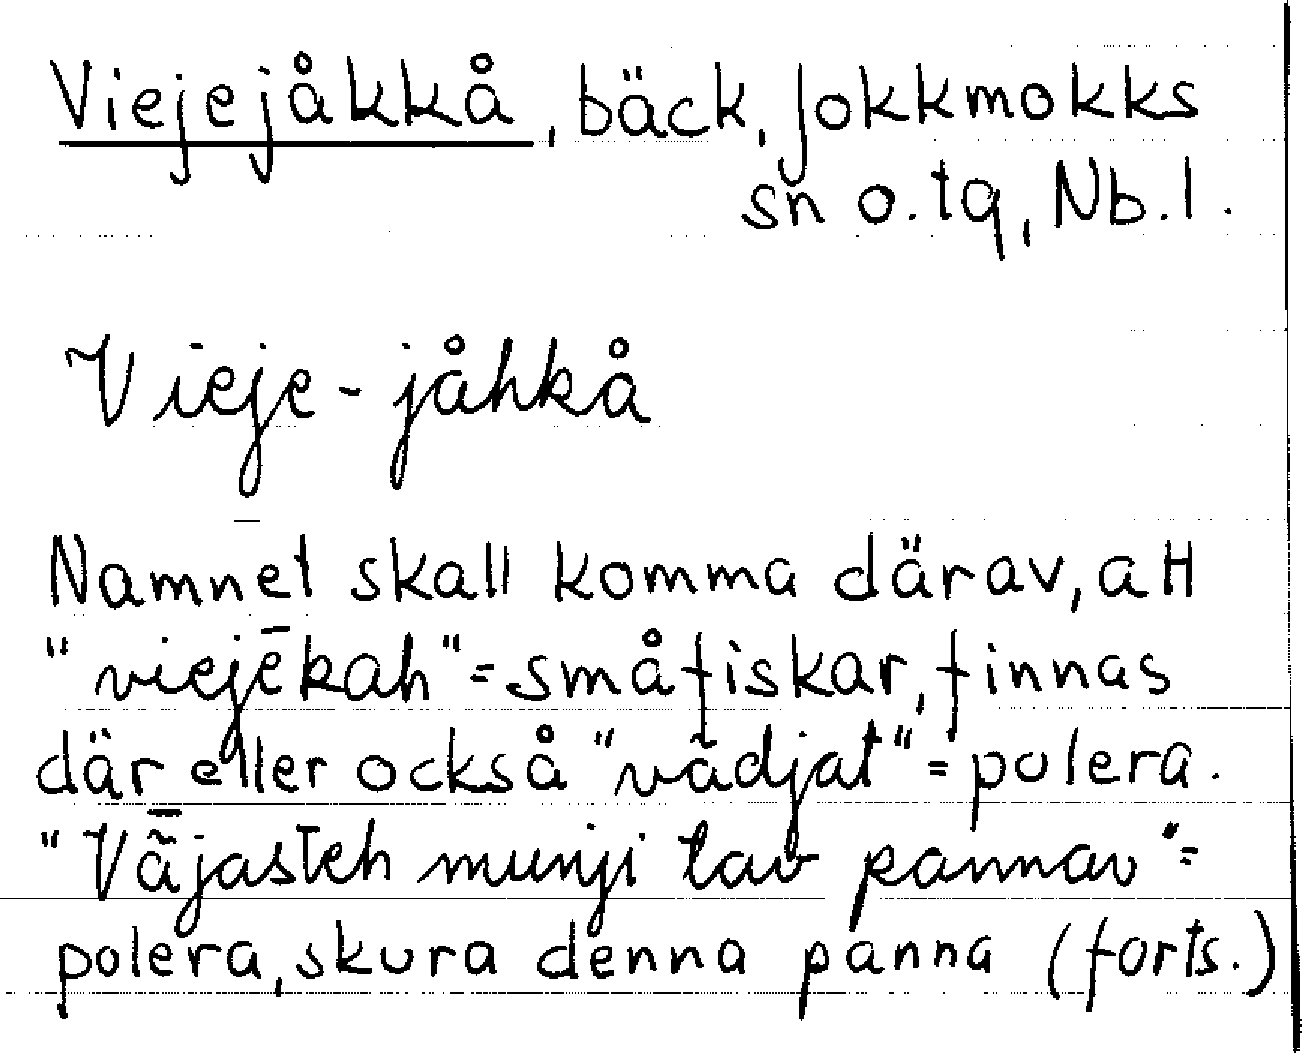 Viejejåkkå, bäck, Jokkmokks
sn o. tg, Nb. l.
Vieje-jåhkå
Namnet skall komma därav, att
"viejēkah" = småfiskar, finnas
där eller också "vādjat" = polera.
"Vā̃jasteh munji tav pannav" =
polera, skura denna panna (forts.)